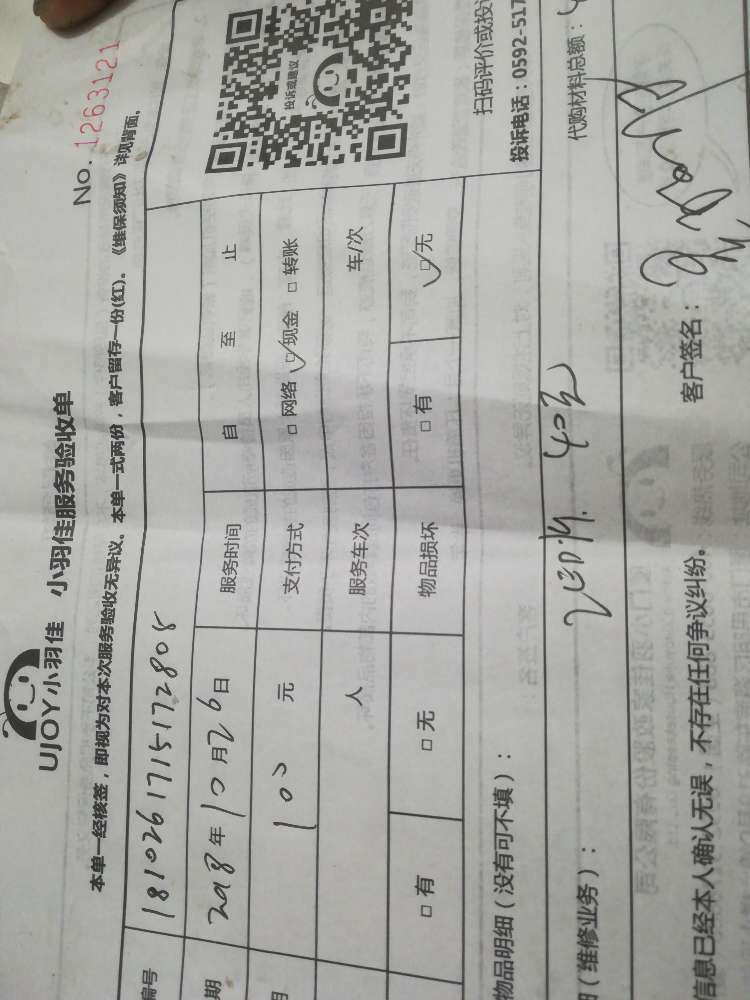 UJOY小羽佳 小羽佳服务验收单
No. 1263121
本单一经核签，即视为对本次服务验收无异议。本单一式两份，客户留存一份(红)。《维保须知》详见背面。
编号 181026171517280
期 2018年10月26日 服务时间 自 至 止
用 100 元 支付方式 □网络 ☑现金 □转账
人 服务车次 车/次
□有 □无 物品损坏 □有 ☑无
投诉或建议
扫码评价或投诉
投诉电话：0592-517
物品明细（没有可不填）：
（维修业务）： LED灯. 40元 代购材料总额：
信息已经本人确认无误，不存在任何争议纠纷。 客户签名：